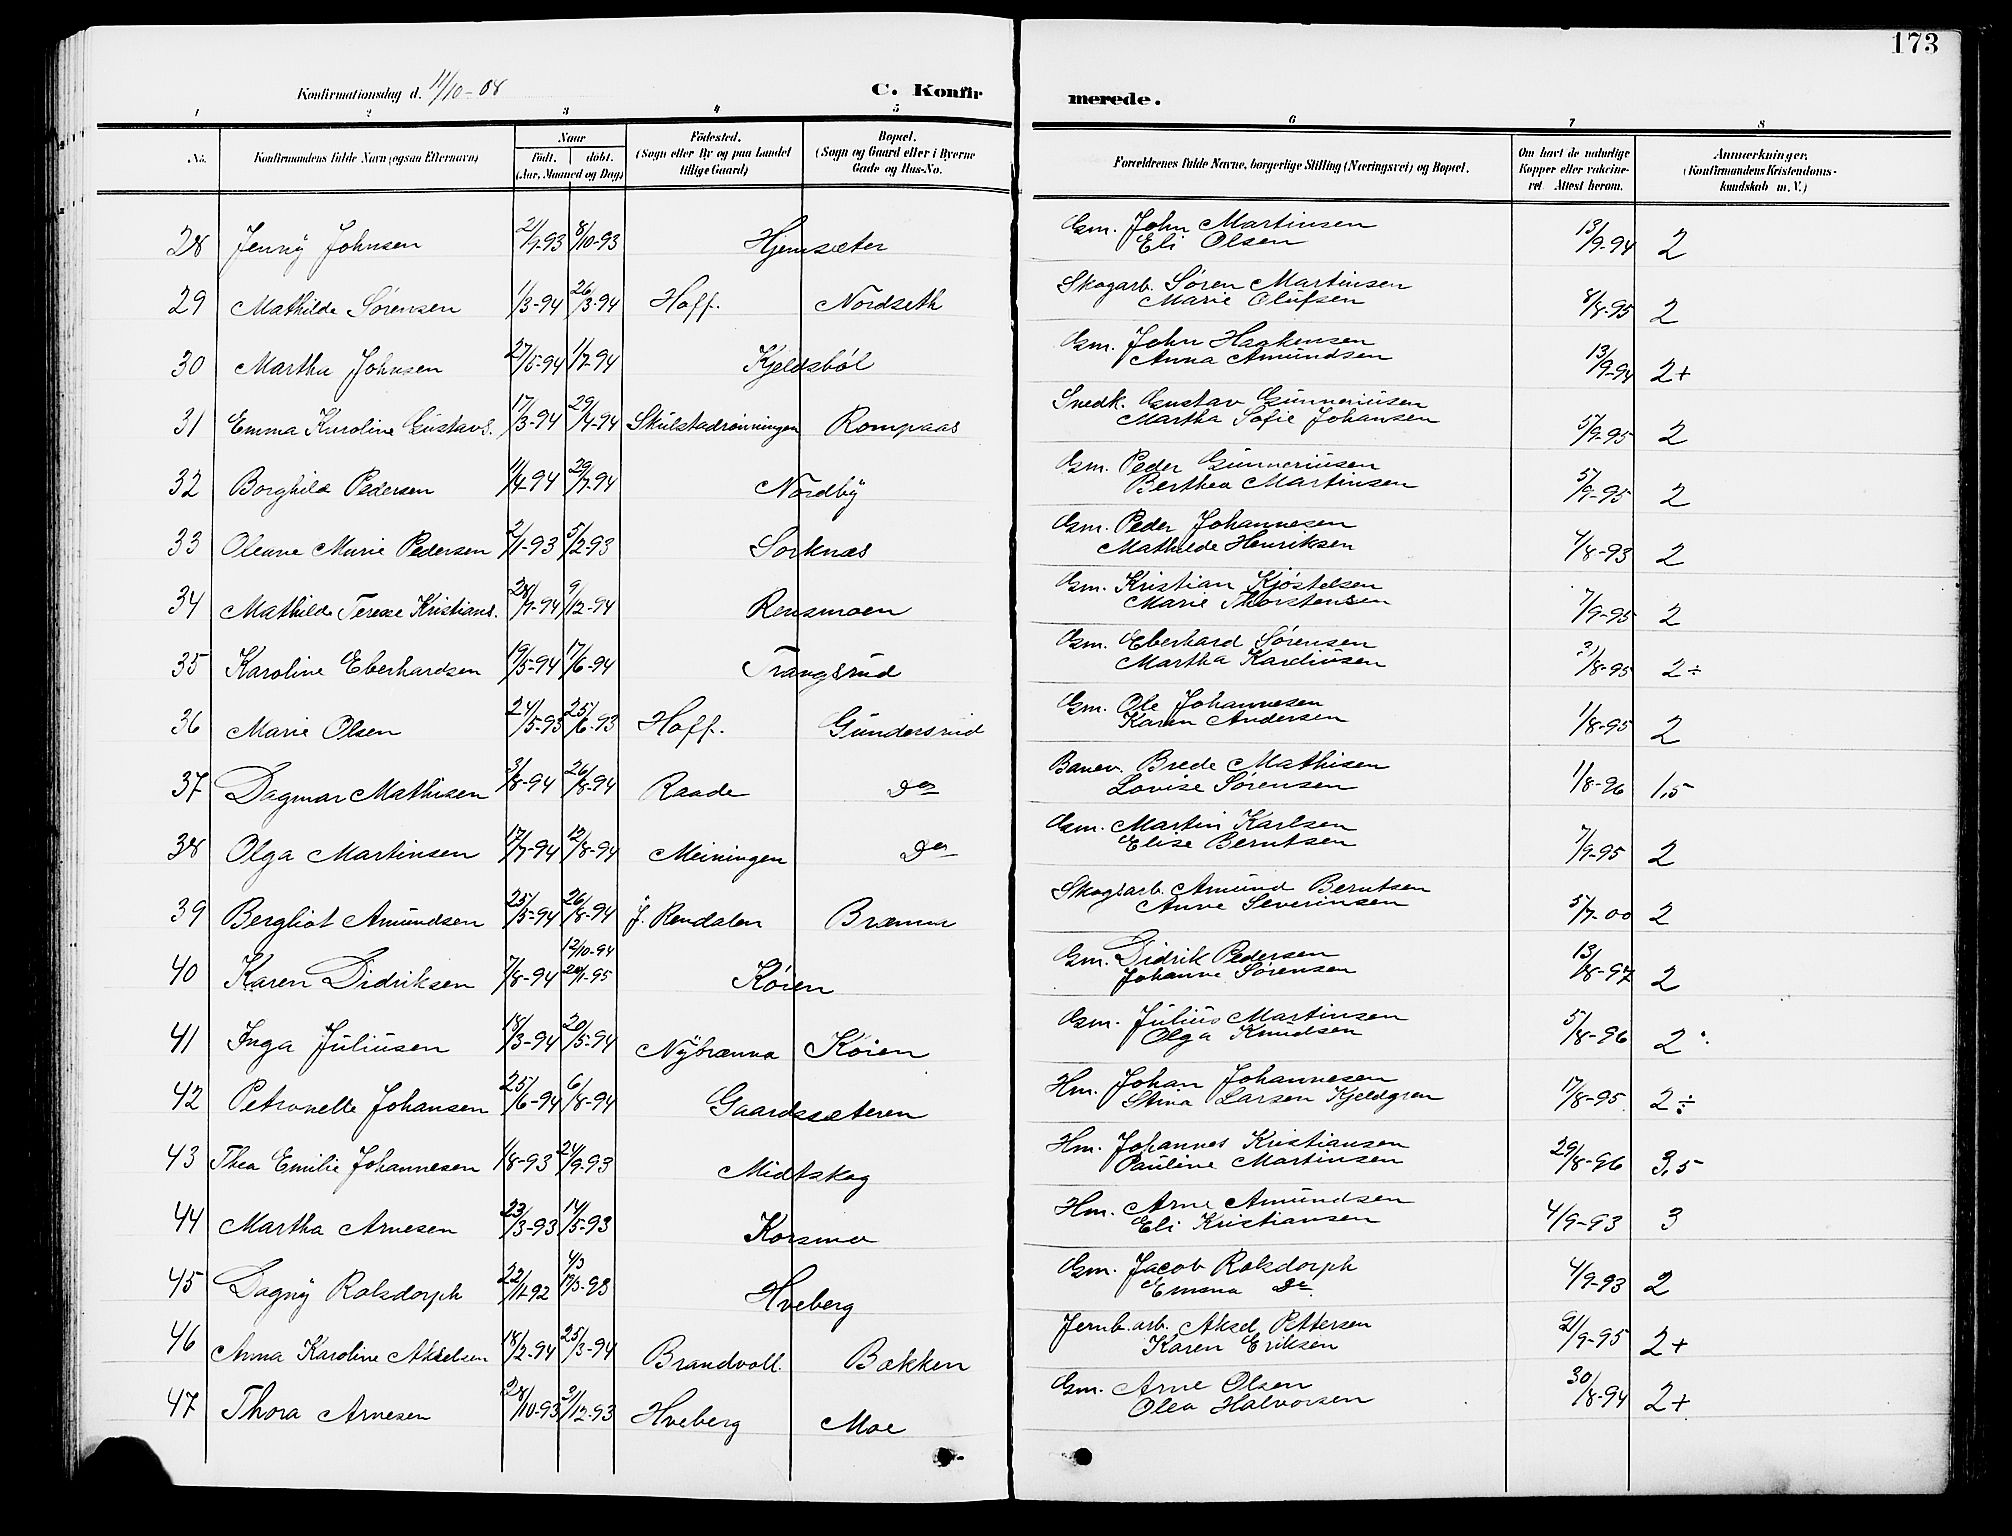 173
Konfirmationsdag d. 11/10-08 C. Konfirmerede.
1 2 3 4 5 6 7 8
No. Konfirmandens fulde Navn (ogsaa Efternavn) Naar født. døbt. (Aar, Maaned og Dag) Fødested. (Sogn eller By og paa Landet tillige Gaard) Bopæl. (Sogn og Gaard eller i Byerne Gade og Hus-No. Forældrenes fulde Navne, borgerlige Stilling (Næringsvei) og Bopæl. Om havt de naturlige Kopper eller vakcineret. Attest herom. Anmærkninger. (Konfirmandens Kristendomskundskab m. V.)
28 Jenny Johnsen 2/9-93 8/10-93 Hjemsæter Gm. John Martinsen 13/9-94 2
Eli Olsen
29 Mathilde Sørensen 1/3-94 26/3-94 Hoff. Nordseth Skogarb. Søren Martinsen 8/8-95 2
Marie Olufsen
30 Martha Johnsen 27/5-94 1/7-94 Kjeldsböl Gm. John Haakensen 13/9-94 2+
Anna Amundsen
31 Emma Karoline Gustavs. 17/3-94 29/4-94 Skulstadrønningen Rompaas Snedk. Gustav Gunneriusen 5/9-95 2
Martha Sofie Johansen
32 Borghild Pedersen 11/4-94 29/7-94 Nordby Gm. Peder Gunneriusen 5/9-95 2
Berthea Martinsen
33 Oleane Marie Pedersen 2/1-93 5/2-93 Sorknæs Gm. Peder Johannesen 4/8-93 2
Mathilde Henriksen
34 Mathilde Terese Kristians. 28/9-94 9/12-94 Rensmoen Gm. Kristian Kjöstelsen 7/9-95 2
Marie Thorstensen
35 Karoline Eberhardsen 19/5-94 17/6-94 Trangsrud Gm. Eberhard Sørensen 3/8-95 2÷
Martha Kardiusen
36 Marie Olsen 24/5-93 25/6-93 Hoff. Gundersrud Gm. Ole Johannesen 1/8-95 2
Karen Andersen
37 Dagmar Mathisen 3/8-94 26/8-94 Raade Do Banev. Brede Mathisen 1/8-96 1,5
Lovise Sørensen
38 Olga Martinsen 17/7-94 12/8-94 Meiningen Do Gm. Martin Karlsen 7/9-95 2
Elise Berntsen
39 Bergliot Amundsen 25/5-94 26/8-94 Y. Rendalen Brænna Skogsarb. Amund Berntsen 5/7-00 2
Anne Severinsen
12/10-94
40 Karen Didriksen 7/8-94 20/1-95 Køien Gm. Didrik Pedersen 13/8-97 2
Johanne Sørensen
41 Inga Juliusen 18/3-94 20/5-94 Nybrænna Køien Gm. Julius Martinsen 5/8-96 2÷
Olga Knudsen
42 Petronelle Johansen 25/6-94 6/8-94 Gaardssæteren Hm. Johan Johannesen 17/8-95 2÷
Stina Larsen Kjeldgren
43 Thea Emilie Johannesen 1/8-93 24/9-93 Midtskog Hm. Johannes Kristiansen 29/8-96 3,5
Pauline Martinsen
44 Martha Arnesen 23/3-93 14/5-93 Korsmo Hm. Arne Amundsen 4/9-93 3
Eli Kristiansen
4/3
45 Dagny Rolsdorph 22/11-92 19/3-93 Hveberg Gm. Jacob Rolsdorph 4/9-93 2
Emma Do.
46 Anna Karoline Akselsen 18/2-94 25/3-94 Brandvold. Bakken Jernb.arb. Aksel Pettersen 21/9-95 2+
Karen Eriksen
47 Thora Arnesen 28/10-93 3/12-93 Hveberg Moe Gm. Arne Olsen 30/8-94 2+
Olea Halvorsen